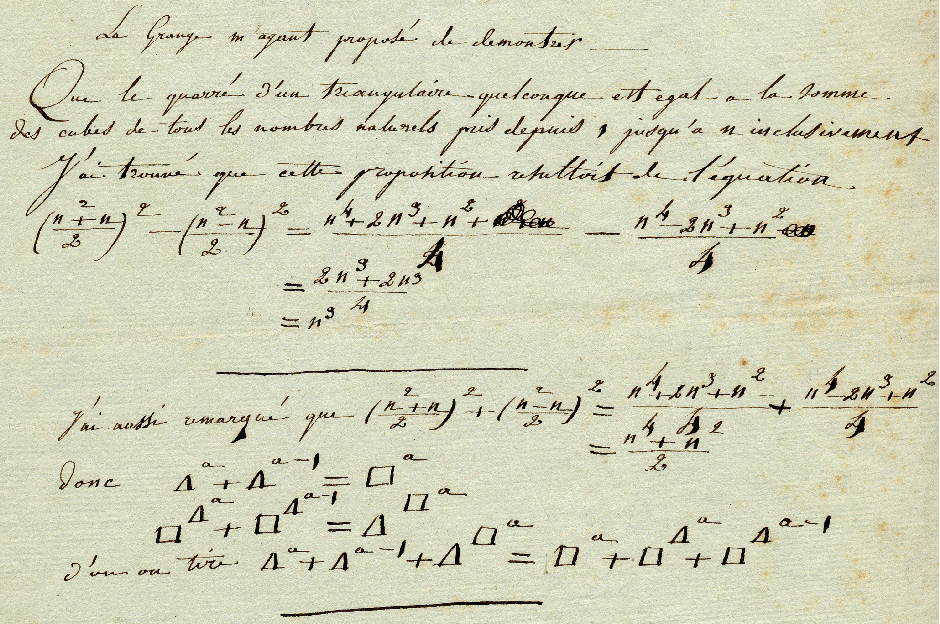 La Grange m'ayant proposé de demontrer
Que le quarré d'un triangulaire quelconque est egal a la somme
des cubes de tous les nombres naturels pris depuis 1 jusqu'a n inclusivement
J'ai trouvé que cette proposition resultoit de l'équation
(n² + n / 2)² − (n² − n / 2)² = n⁴ + 2n³ + n² + / 4 − n⁴ − 2n³ + n² / 4
= 2n³ + 2n³ / 4
= n³
J'ai aussi remarqué que (n² + n / 2)² + (n² − n / 2)² = n⁴ + 2n³ + n² / 4 + n⁴ − 2n³ + n² / 4
= n⁴ + n² / 2
donc Δᵃ + Δᵃ⁻¹ = □ᵃ
□^Δᵃ + □^Δᵃ⁻¹ = Δ^□ᵃ
d'ou on tire Δᵃ + Δᵃ⁻¹ + Δ^□ᵃ = □ᵃ + □^Δᵃ + □^Δᵃ⁻¹